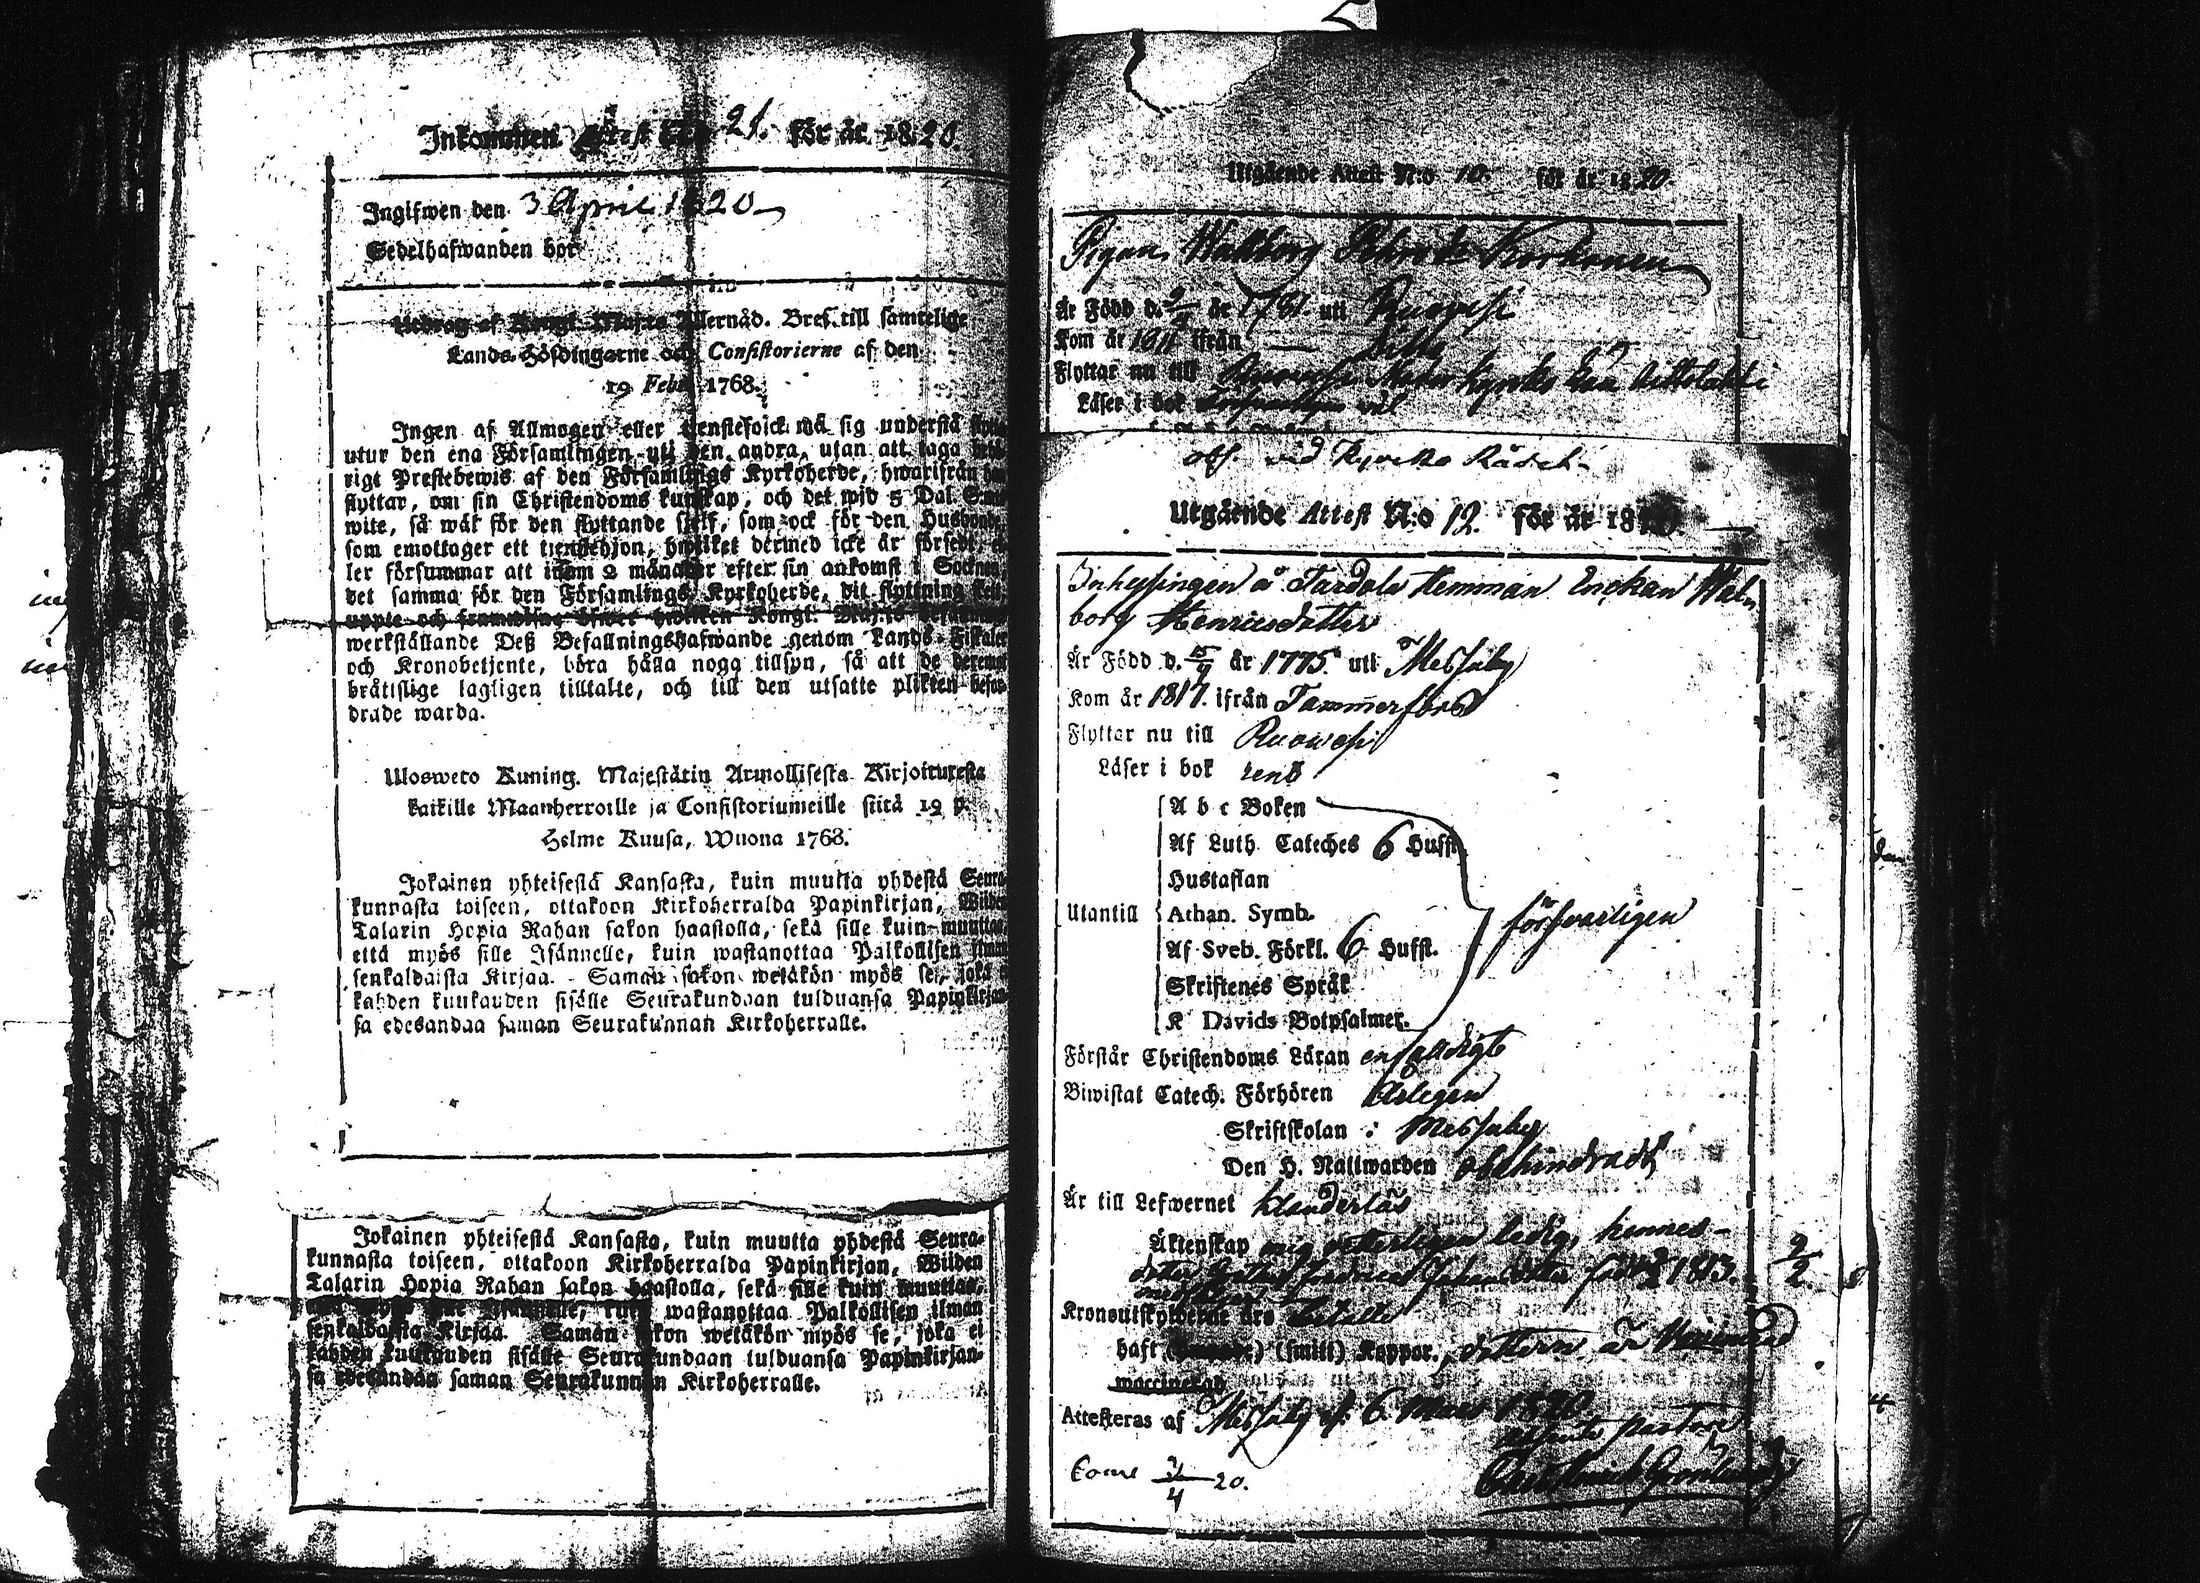 Inkommen Attest N:o 21. för år 1820.
Ingifwen den 3 April 1820
Sedelhafwanden bor
Utdrag af Kongl. Maj:ts Allernåd. Bref till samtelige
Lands-Höfdingarne och Consistorierne af den
19 Febr. 1768.
Ingen af Allmogen eller tjenstefolck må sig understå flytta
utur den ena Församlingen uti den andra, utan att taga behö-
rigt Prestebewis af den Församlings Kyrkoherde, hwarifrån han
flyttar, om sin Christendoms kunskap, och det wid 5 Dal. S:mt
wite, så wäl för den flyttande sjelf, som ock för den Husbonde,
som emottager ett tienstehjon, hwilket dermed icke är försedt, el-
ler försummar att inom 2 månader efter sin ankomst i Socknen,
det samma för den Församlings Kyrkoherde, dit flyttning sker,
uppte och framwisa öfwer hwilken Kongl. Maj:ts
werkställande Deß Befallningshafwande genom Lands-Fiskaler
och Kronobetjente, böra hålla noga tillsyn, så att de deremot
bråtislige lagligen tilltalte, och till den utsatte plikten befor-
drade warda.
Ulosweto Kuning. Majestätin Armollisesta Kirjoituxesta
kaikille Maanherroille ja Consistoriumeille siitä 19 p.
Helme Kuusa, Wuona 1768.
Jokainen yhteisestä Kansasta, kuin muutta yhdestä Seura-
kunnasta toiseen, ottakoon Kirkoherralda Papinkirjan, Wiiden
Talarin Hopia Rahan sakon haastolla, sekä sille kuin muuttaa,
että myös sille Isännelle, kuin wastanottaa Palkollisen ilman
senkaldaista Kirjaa. Saman sakon wetäkön myös se, joka ei
kahden kuukauden sisälle Seurakundaan tulduansa Papinkirjan-
sa edesandaa saman Seurakunnan Kirkoherralle.
Jokainen yhteisestä Kansasta, kuin muutta yhdestä Seura-
kunnasta toiseen, ottakoon Kirkoherralda Papinkirjan, Wiiden
Talarin Hopia Rahan sakon haastolla, sekä sille kuin muuttaa,
wastanottaa Palkollisen ilman
senkaldaista Kirjaa. Saman sakon wetäkön myös se, joka ei
kahden kuukauden sisälle Seurakundaan tulduansa Papinkirjan-
sa edesandaa saman Seurakunnan Kirkoherralle.
Utgående Attest N:o 10. för år 1820.
Pigan Walborg Korkonen
Är Född d. 2/4 år 1781. uti Ruowesi
Kom år 1811 ifrån
Flyttar nu till Ruowesi
Läser i bok
obs. wid Kyrkko Rådet
Utgående Attest N:o 12. för år 1820
Inhysingen å Tardala Hemman Enckan Wal-
borg Henricsdotter
Är Född d. 15/9 år 1775. uti Messuby
Kom år 1817. ifrån Tammerfors
Flyttar nu till Ruowesi
Läser i bok rent
A b c Boken
Af Luth. Cateches 6 Hufst.
Hustaflan
Utantill Athan. Symb. försvarligen
Af Sveb. Förkl. 6 Hufst.
Skriftenes Språk
K Davids Botpsalmer.
Förstår Christendoms Läran enfalldigt
Biwistat Catech. Förhören årligen
Skriftskolan i Messuby
Den H. Nattwarden obehindradt
Är till Lefwernet klanderlös
Äktenskap mig veterligen ledig, hennes
dotter född 1813. 2/2
Kronoutskylderne äro betalte
haft (smitt) Koppor. dottern är
waccinerad
Attesteras af Messuby d. 6 Mars 1820.
Pastore
Kom 3/4 20.